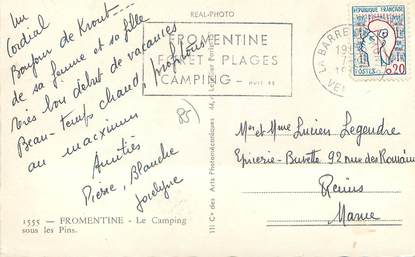 REAL-PHOTO
Un
Cordial
Bonjour de Krout....
de sa femme et sa fille
Très bon début de vacances
Beau-temps chaud, profitons
au maximum
Amitiés
Pierre, Blanche
Jocelyne
85
1555 - FROMENTINE - Le Camping
sous les Pins.
111 Cie des Arts Photomécaniques
FROMENTINE
FORET PLAGES
CAMPING
LA BARRE
REPUBLIQUE FRANCAISE
POSTES
0,20
Mr et Mme Lucien Legendre
Epicerie-Buvette 92 rue des Romains
Reims
Marne